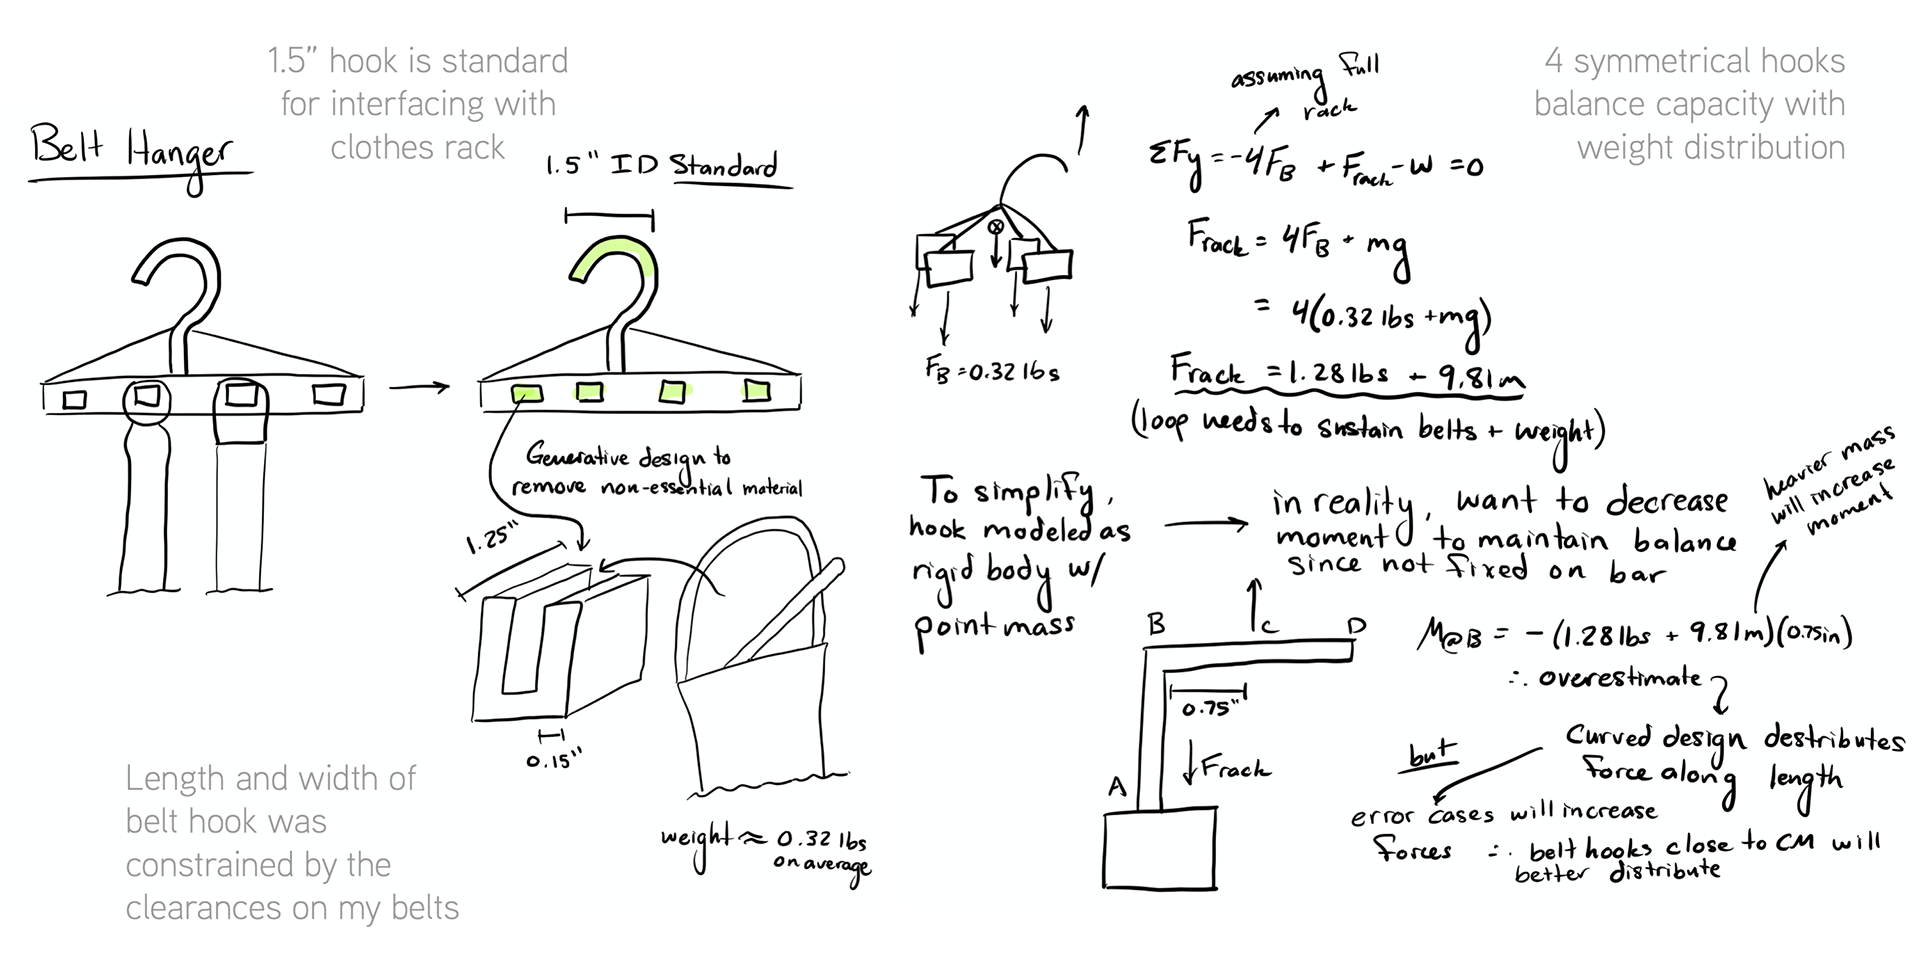 1.5” hook is standard
for interfacing with
clothes rack
Belt Hanger
1.5" ID Standard
Generative design to
remove non-essential material
1.25"
0.15"
weight ≈ 0.32 lbs
on average
Length and width of
belt hook was
constrained by the
clearances on my belts
4 symmetrical hooks
balance capacity with
weight distribution
assuming full
rack
ΣFy = -4FB + Frack - w = 0
Frack = 4FB + mg
= 4(0.32 lbs + mg)
Frack = 1.28 lbs + 9.81m
(loop needs to sustain belts + weight)
FB = 0.32 lbs
To simplify,
hook modeled as
rigid body w/
point mass
in reality, want to decrease
moment to maintain balance
since not fixed on bar
heavier mass
will increase
moment
B
C
D
0.75"
Frack
A
M@B = - (1.28 lbs + 9.81m)(0.75in)
∴ overestimate
Curved design destributes
force along length
but
error cases will increase
forces ∴ belt hooks close to CM will
better distribute